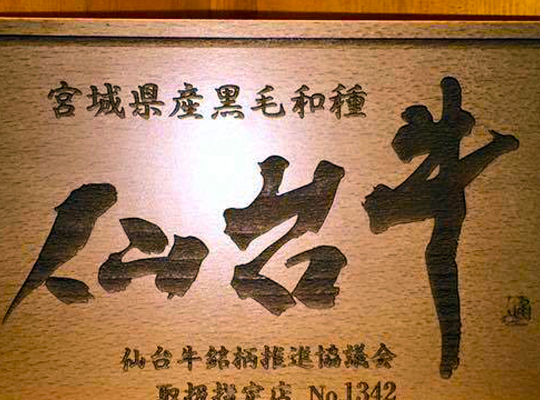 宮城県産黒毛和種
仙台牛
仙台牛銘柄推進協議会
取扱指定店 No.1342